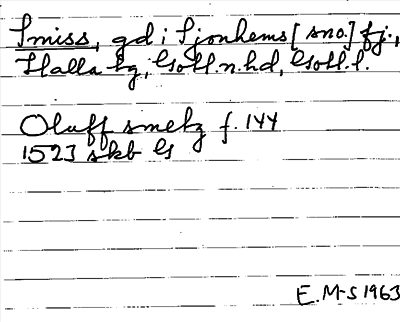 Smiss, gd i Sjonhems [sno.] fj.,
Halla tg, Gotl.n.hd, Gotl.l.
Oluff smetz f. 144
1523 skb G
E.M-S 1963